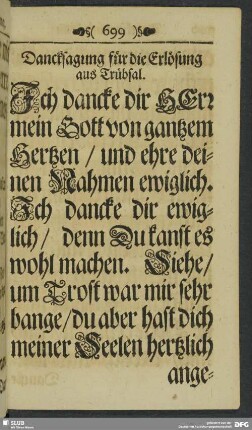 ( 699 )
Dancksagung für die Erlösung
aus Trübsal.
Ich dancke dir HErr
mein Gott von gantzem
Hertzen / und ehre dei-
nen Nahmen ewiglich.
Ich dancke dir ewig-
lich / denn Du kanst es
wohl machen. Siehe /
um Trost war mir sehr
bange / du aber hast dich
meiner Seelen hertzlich
ange-
SLUB
DFG